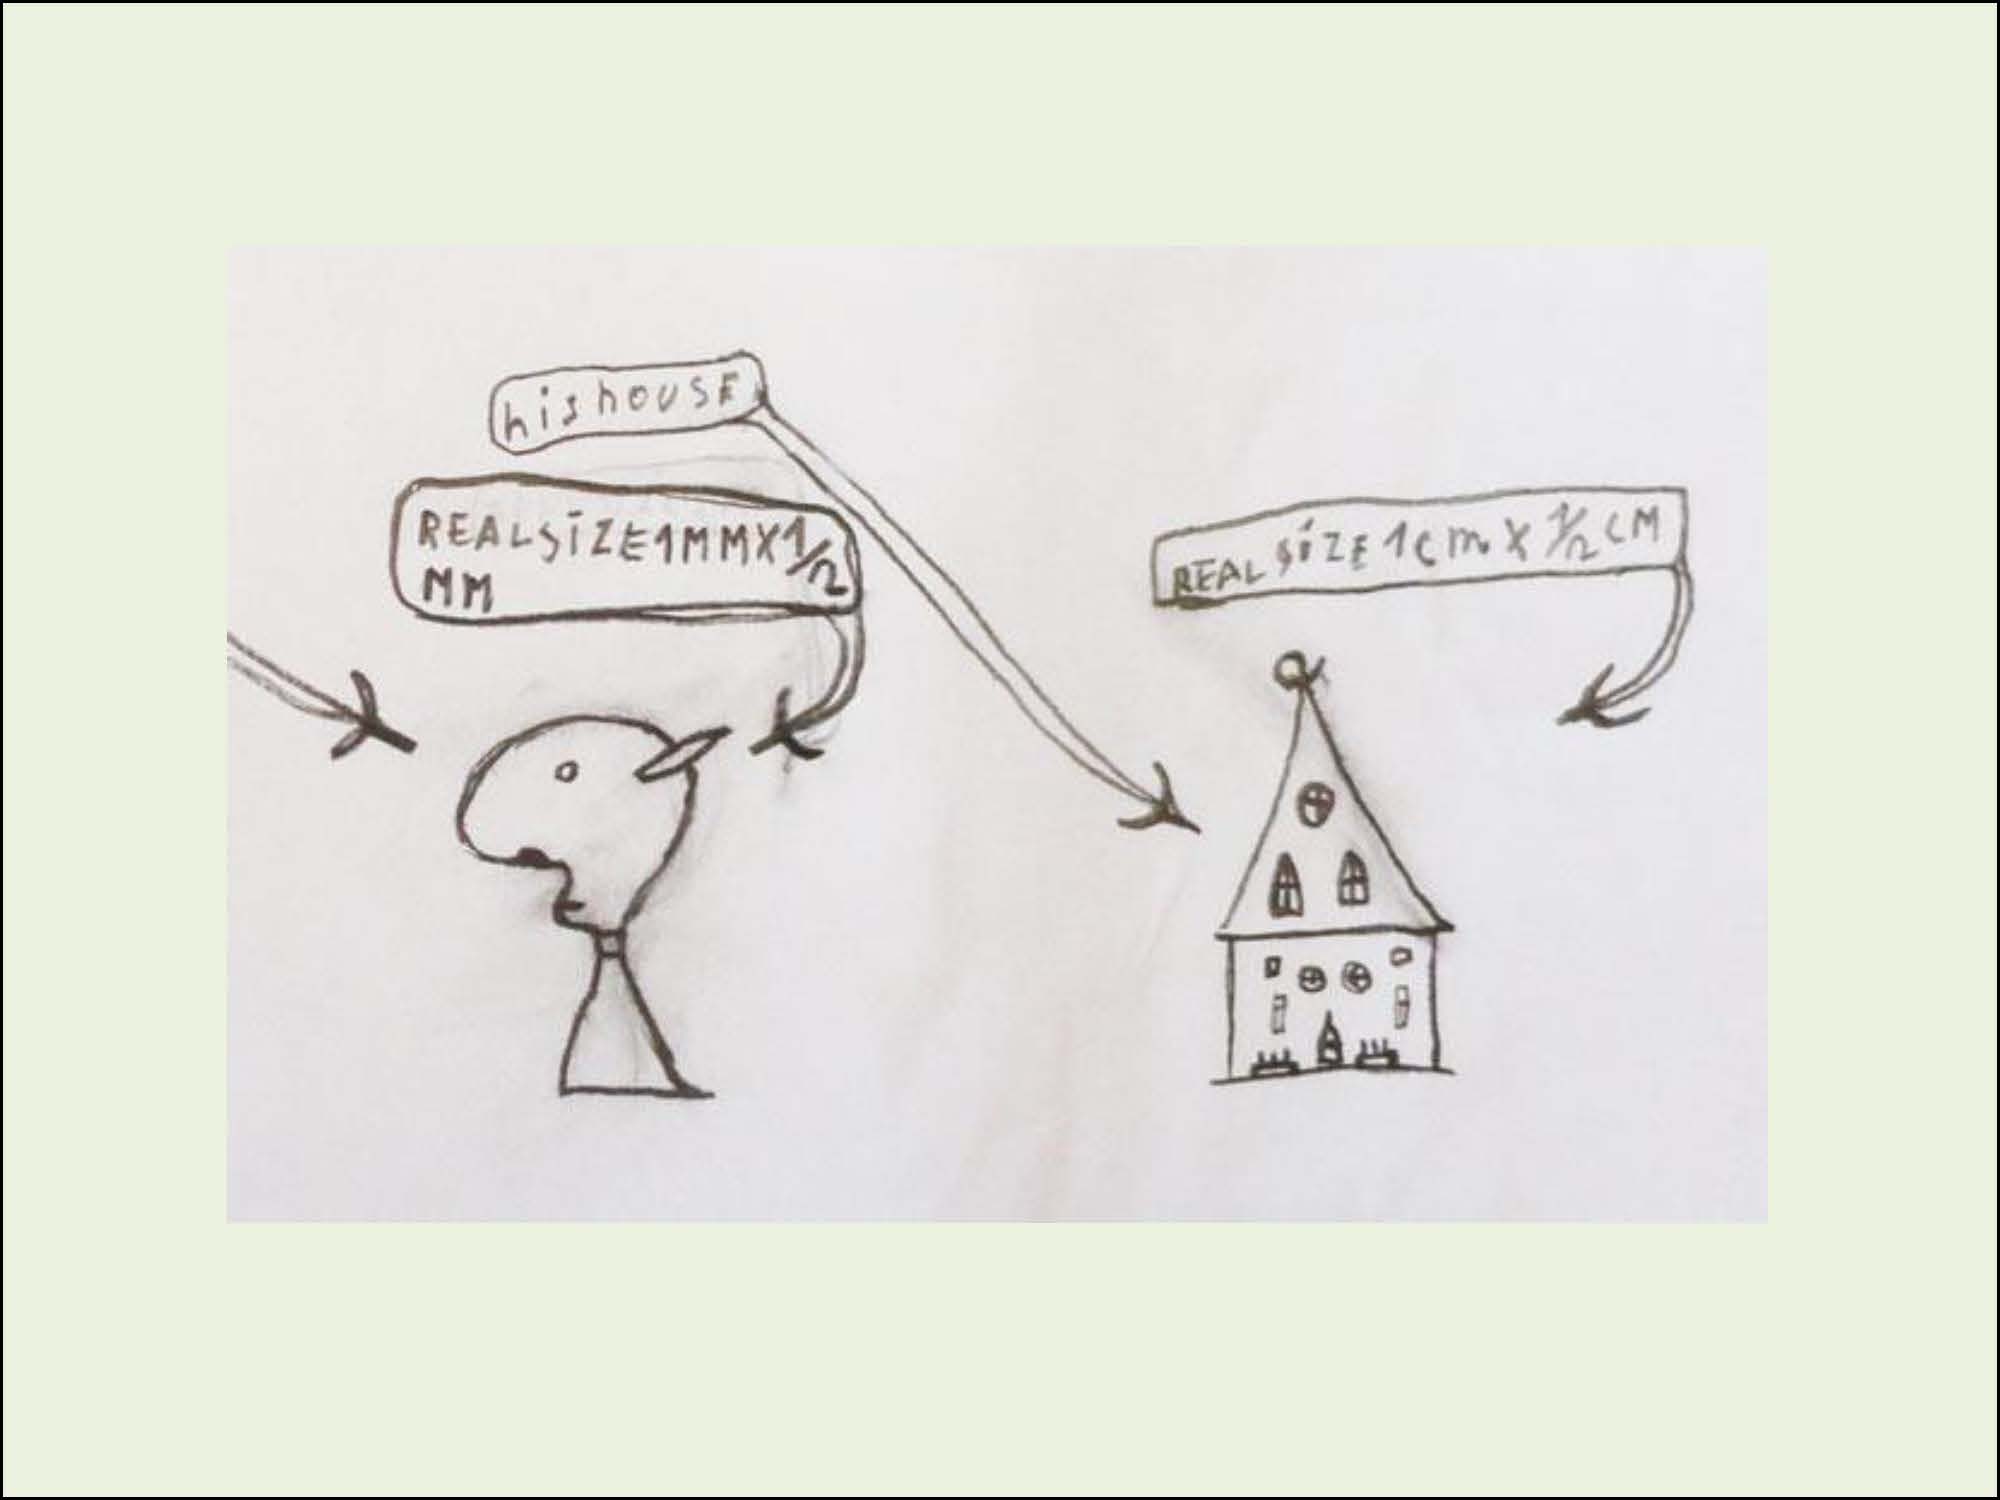 hishouse
REALSiZE1MMX1/2
MM
REAL SiZE 1cm X 1/2 CM